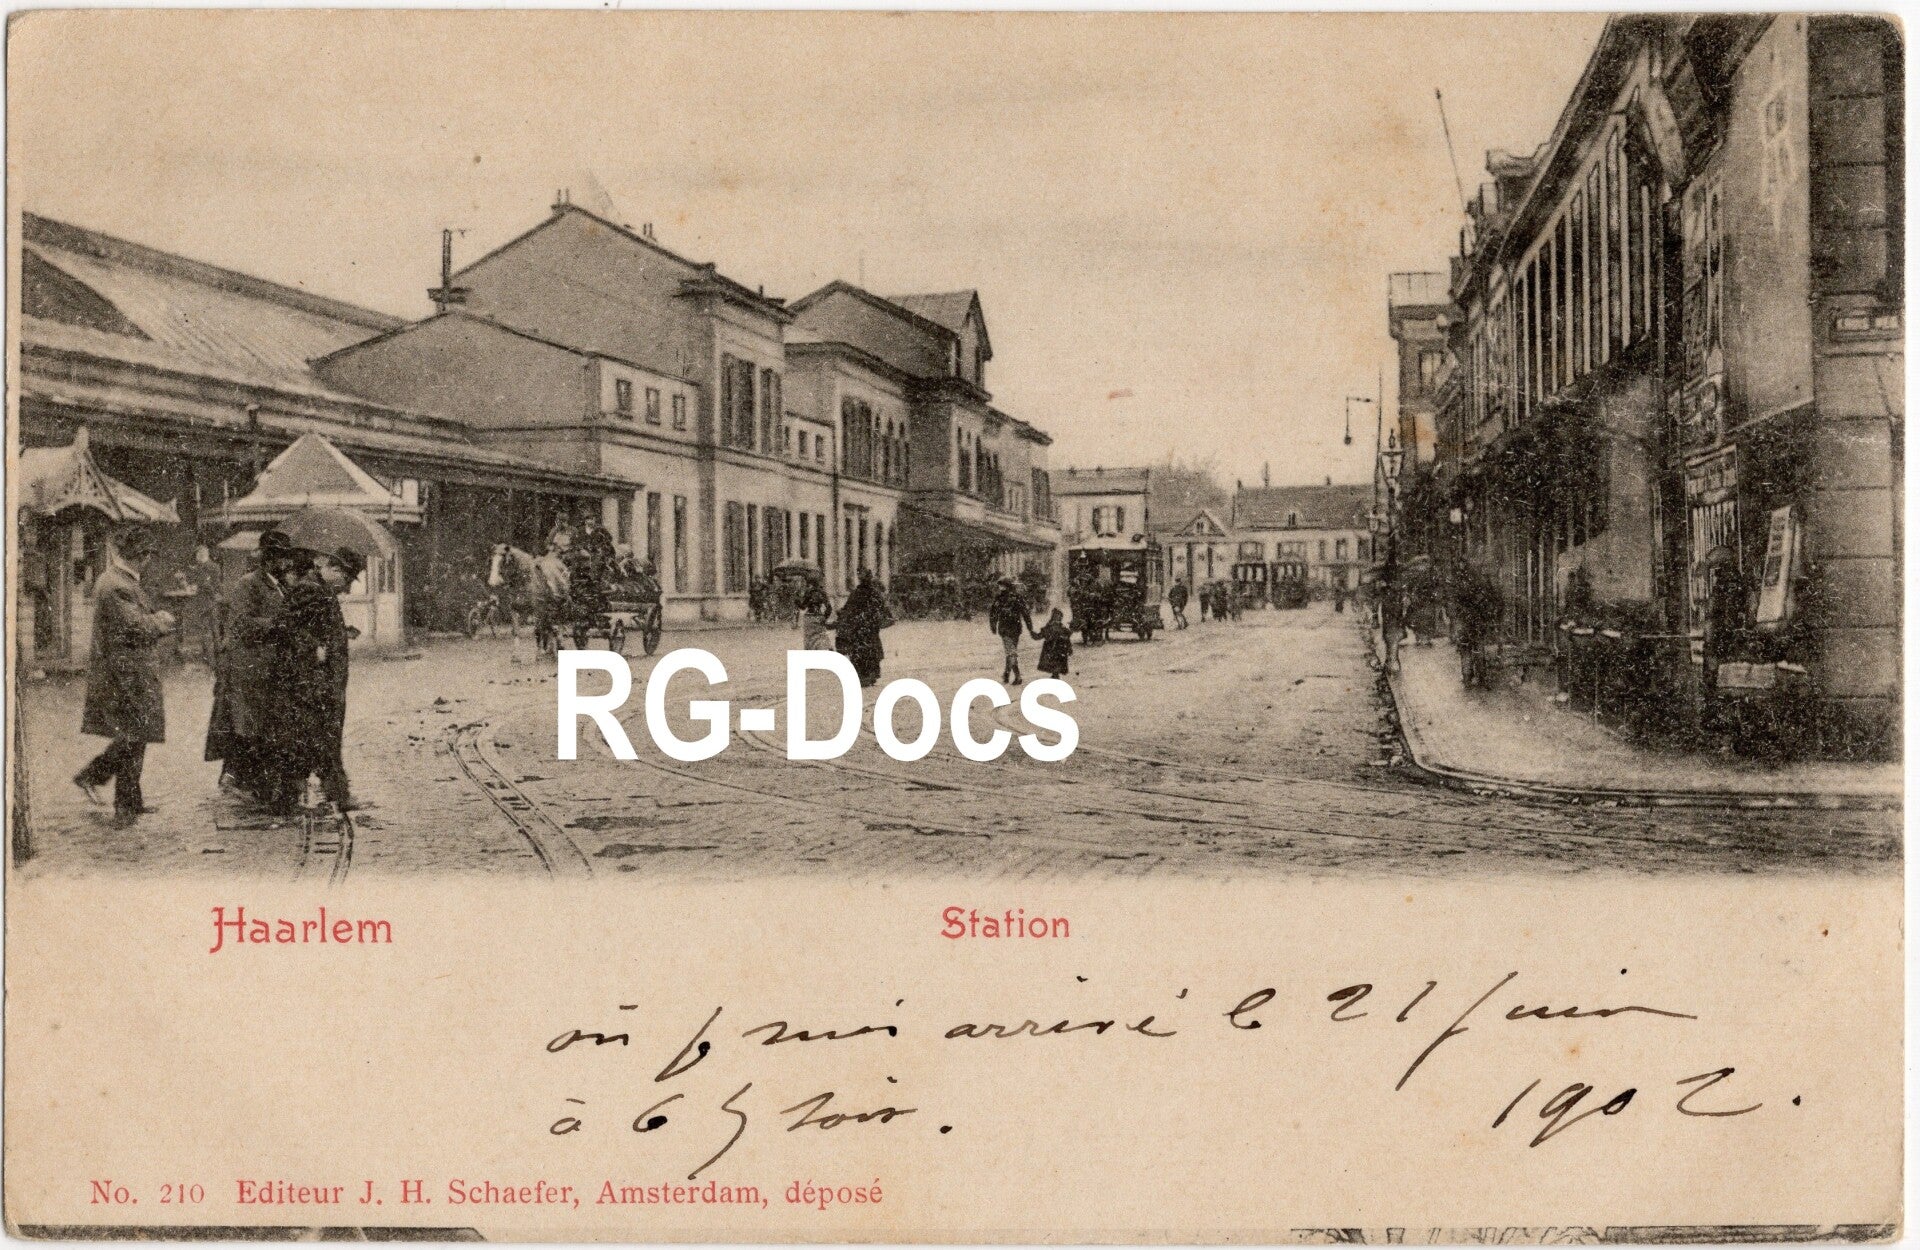 RG-Docs
Haarlem Station
où je suis arrivé le 21 juin
à 6 h soir. 1902.
No. 210 Editeur J. H. Schaefer, Amsterdam, déposé